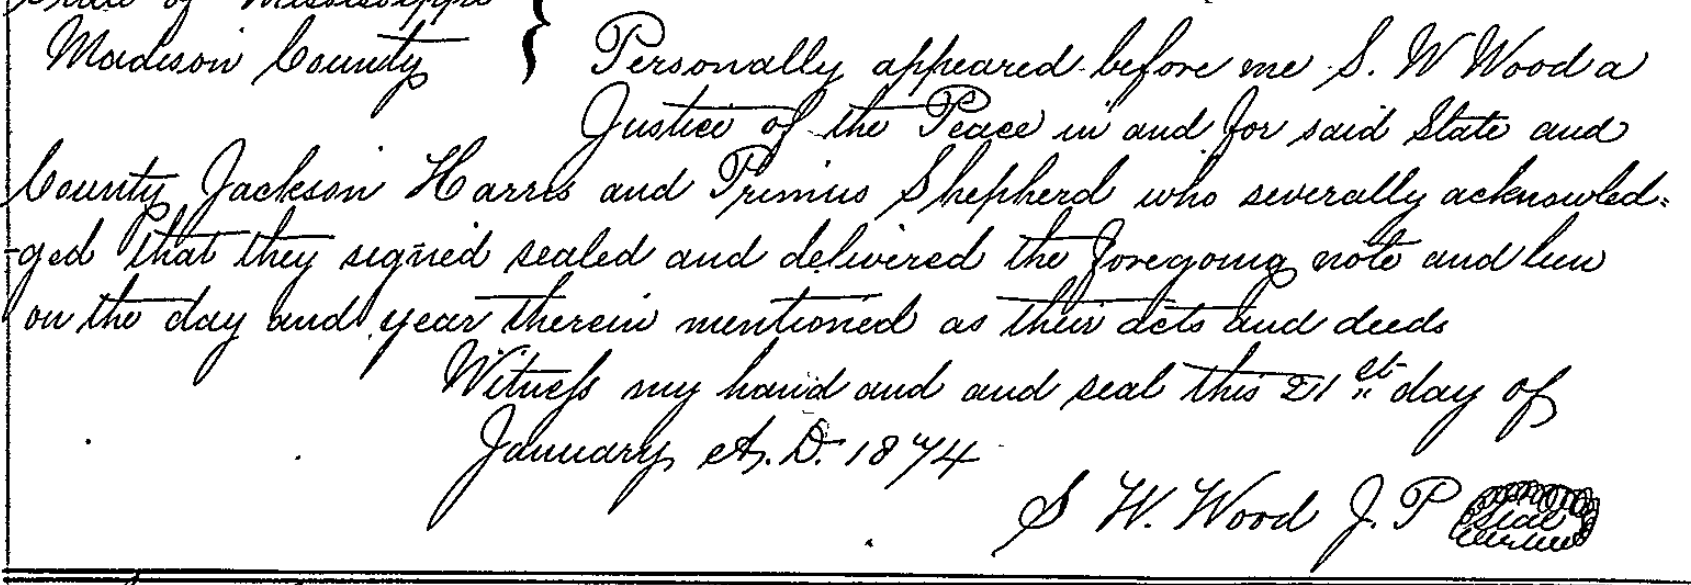 State of Mississippi
Madison County } Personally appeared before me S. W Wood a
Justice of the Peace in and for said State and
County Jackson Harris and Primus Shepherd who severally acknowled=
-ged that they signed sealed and delivered the foregoing note and lien
on the day and year therein mentioned as their acts and deeds
Witness my hand and and seal this 21st day of
January A.D. 1874
S W. Wood J. P Seal